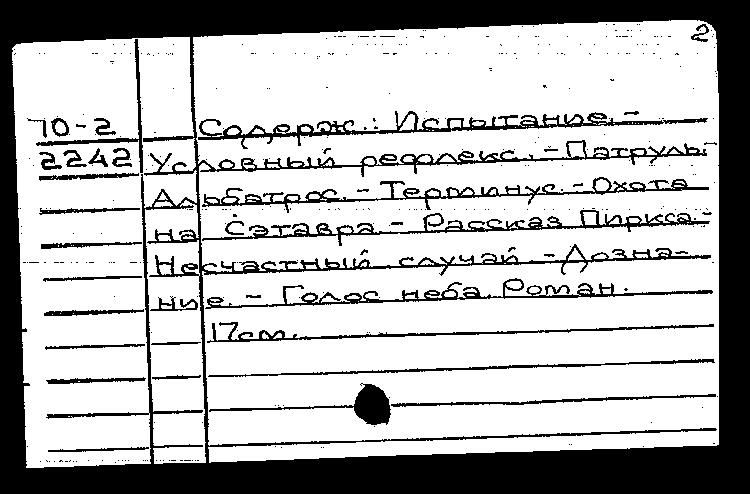 2
70-2 Содерж.: Испытание. -
2242 Условный рефлекс. - Патруль.-
Альбатрос. - Терминус. - Охота
на Сэтавра - Рассказ Пиркса.-
Несчастный случай - Дозна-
ние. - Голос неба. Роман.
17см.